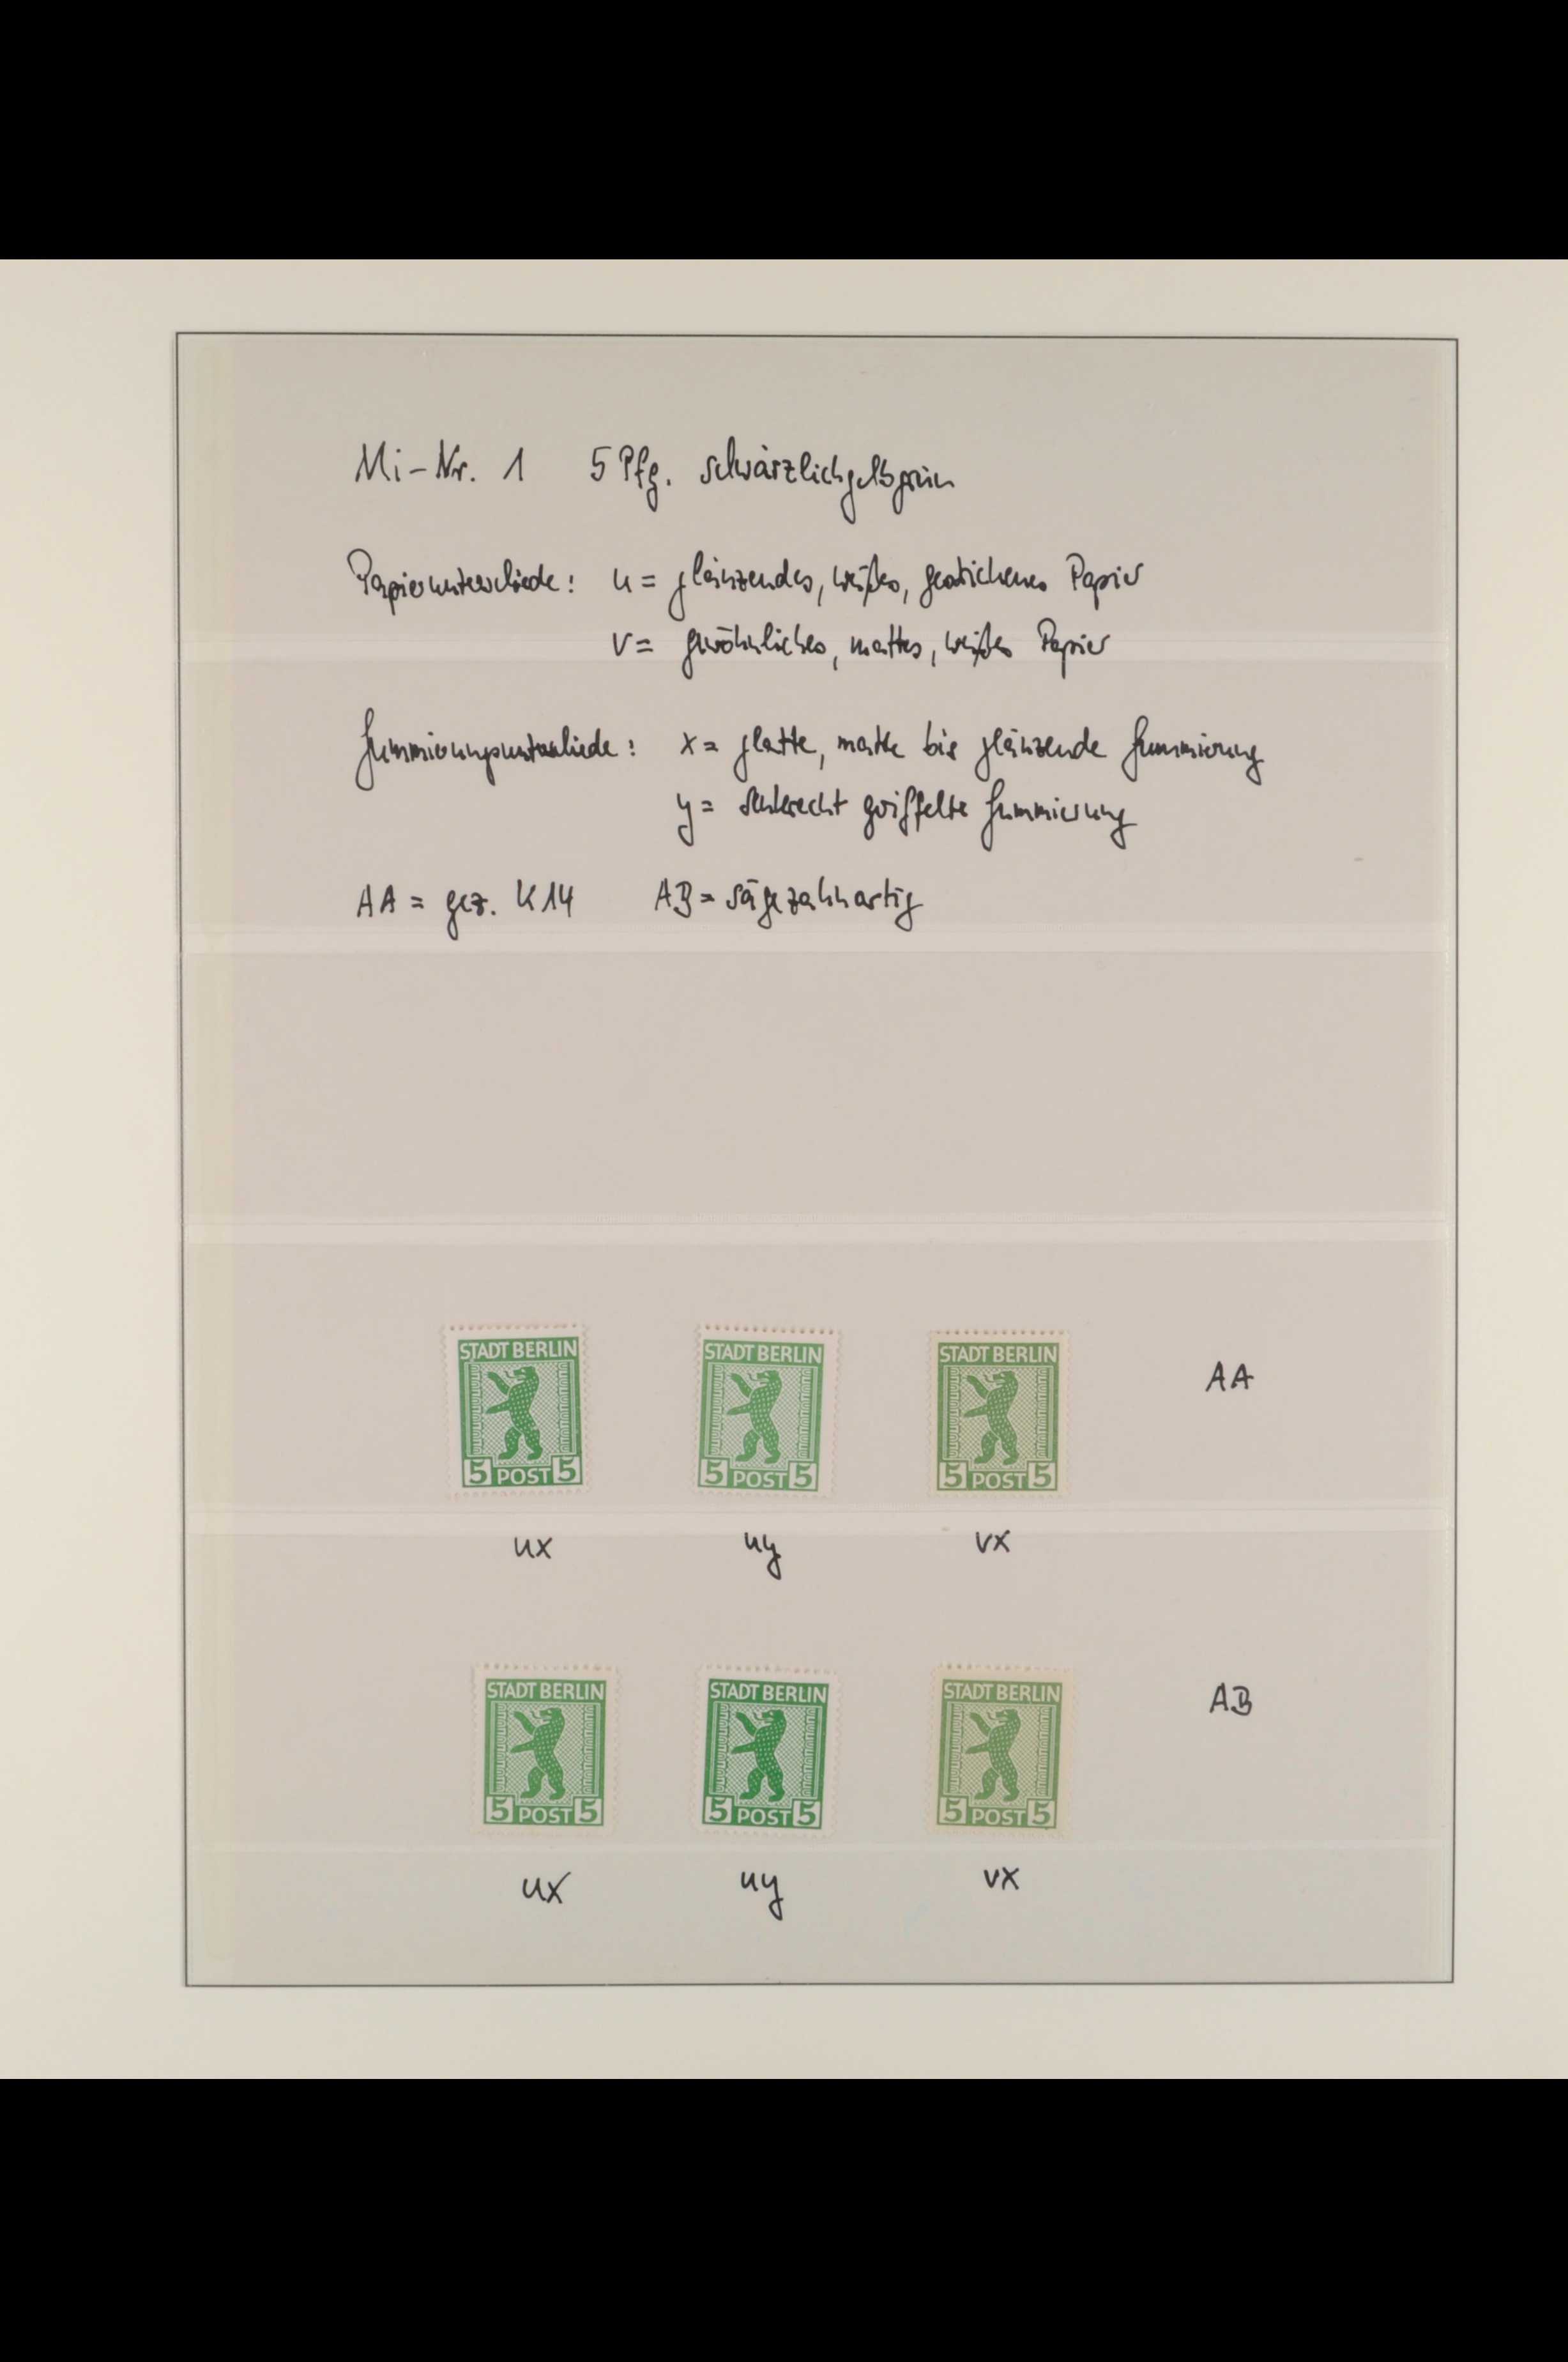 Mi-Nr. 1 5 Pfg. schwärzlichgelbgrün
Papierunterschiede: u = glänzendes, weißes, gestrichenes Papier
v = gewöhnliches, mattes, weißes Papier
Gummierungsunterschiede: x = glatte, matte bis glänzende Gummierung
y = senkrecht geriffelte Gummierung
AA = gez. K14 AB = sägezahnartig
STADT BERLIN STADT BERLIN STADT BERLIN
AA
5 POST 5 5 POST 5 5 POST 5
ux uy vx
STADT BERLIN STADT BERLIN STADT BERLIN
AB
5 POST 5 5 POST 5 5 POST 5
ux uy vx